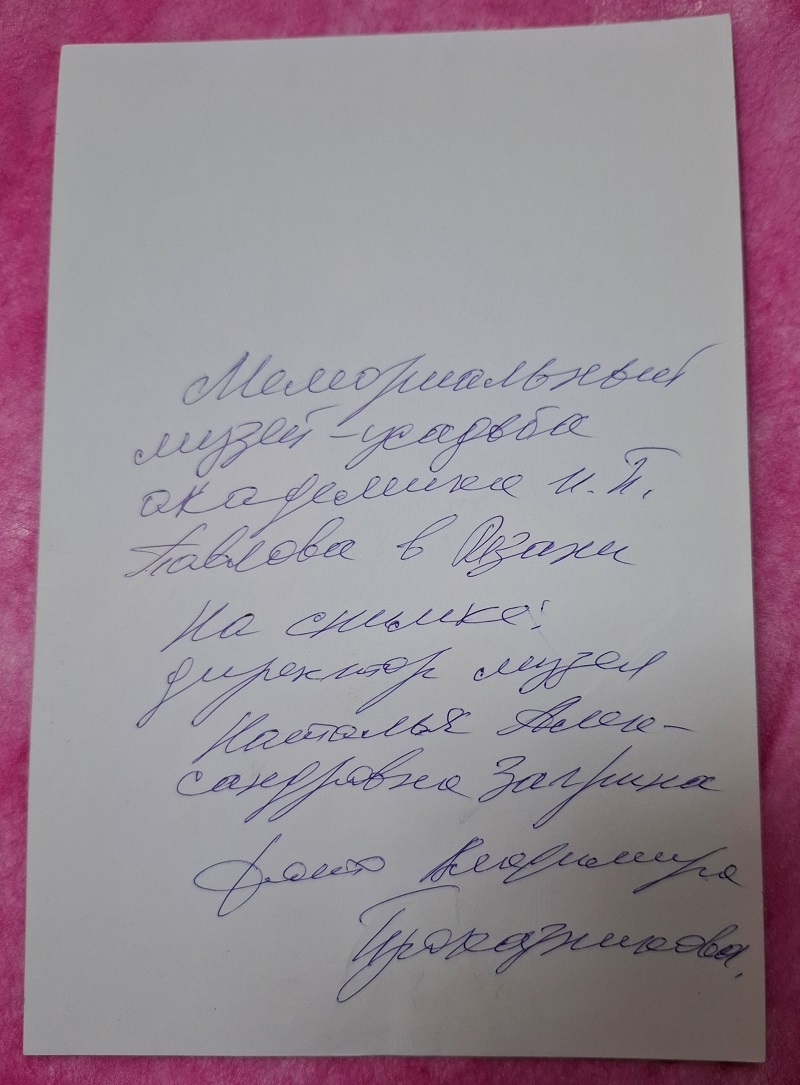 Мемориальный
музей-усадьба
академика И.П.
Павлова в Рязани
На снимке:
директор музея
Наталья Алек-
сандровна Загрина
фото Владимира
Проказникова.